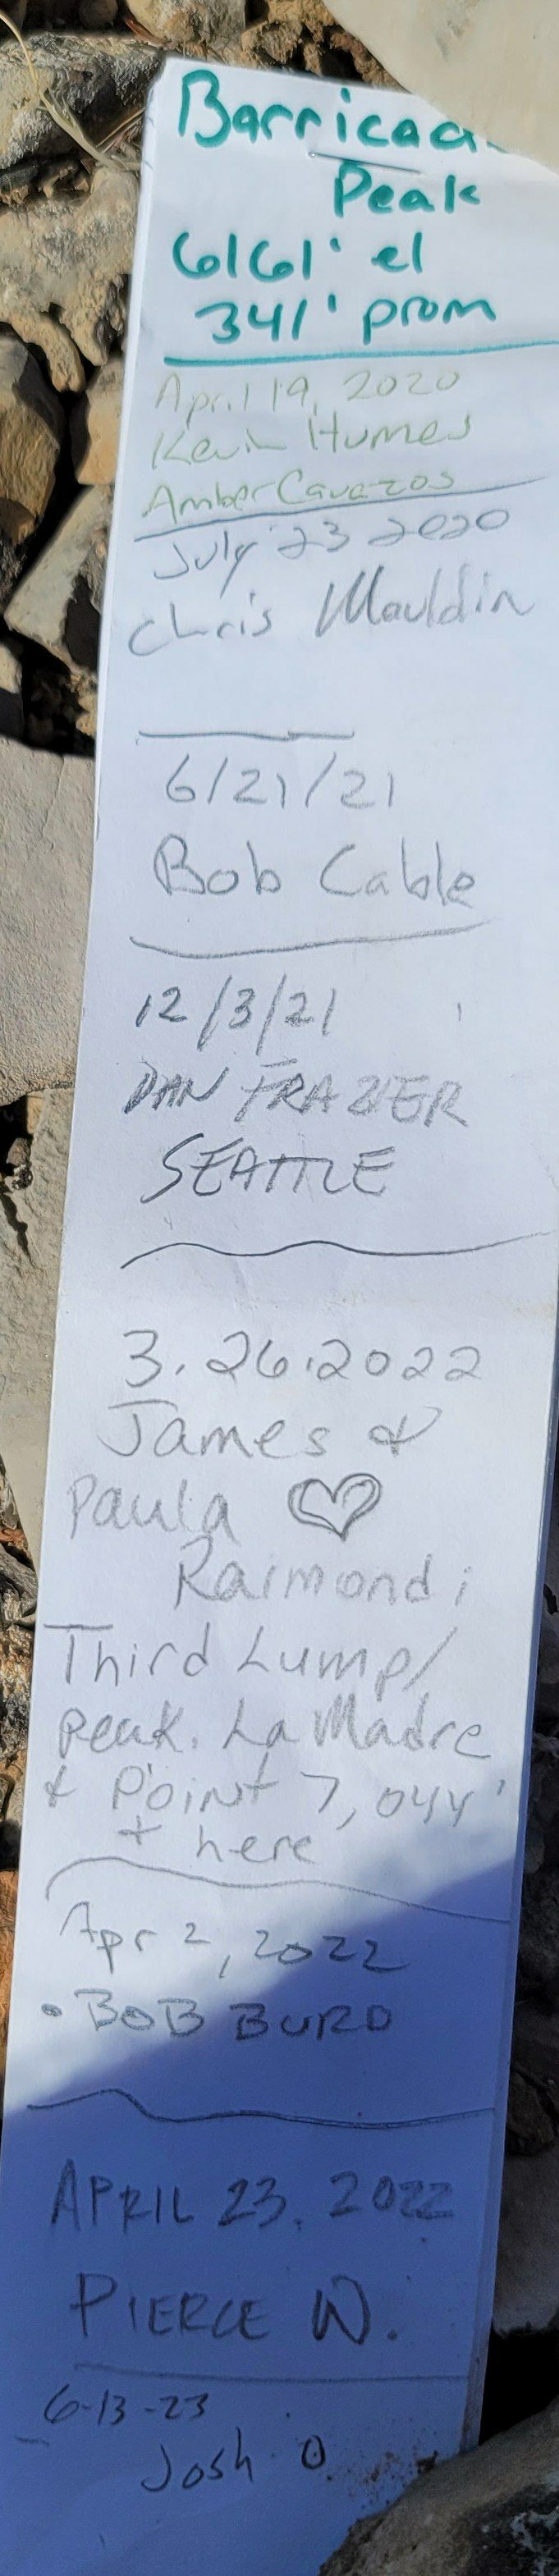 Barricad
Peak
6161' el
341' prom
April 19, 2020
Kevin Humes
Amber Cavazos
July 23 2020
Chris Mauldin
6/21/21
Bob Cable
12/3/21
DAN FRAZIER
SEATTLE
3.26.2022
James &
Paula ♡
Raimondi
Third Lump/
Peak. La Madre
+ Point 7,044'
+ here
Apr 2, 2022
• BOB BURD
APRIL 23, 2022
PIERCE W.
6-13-23
Josh O